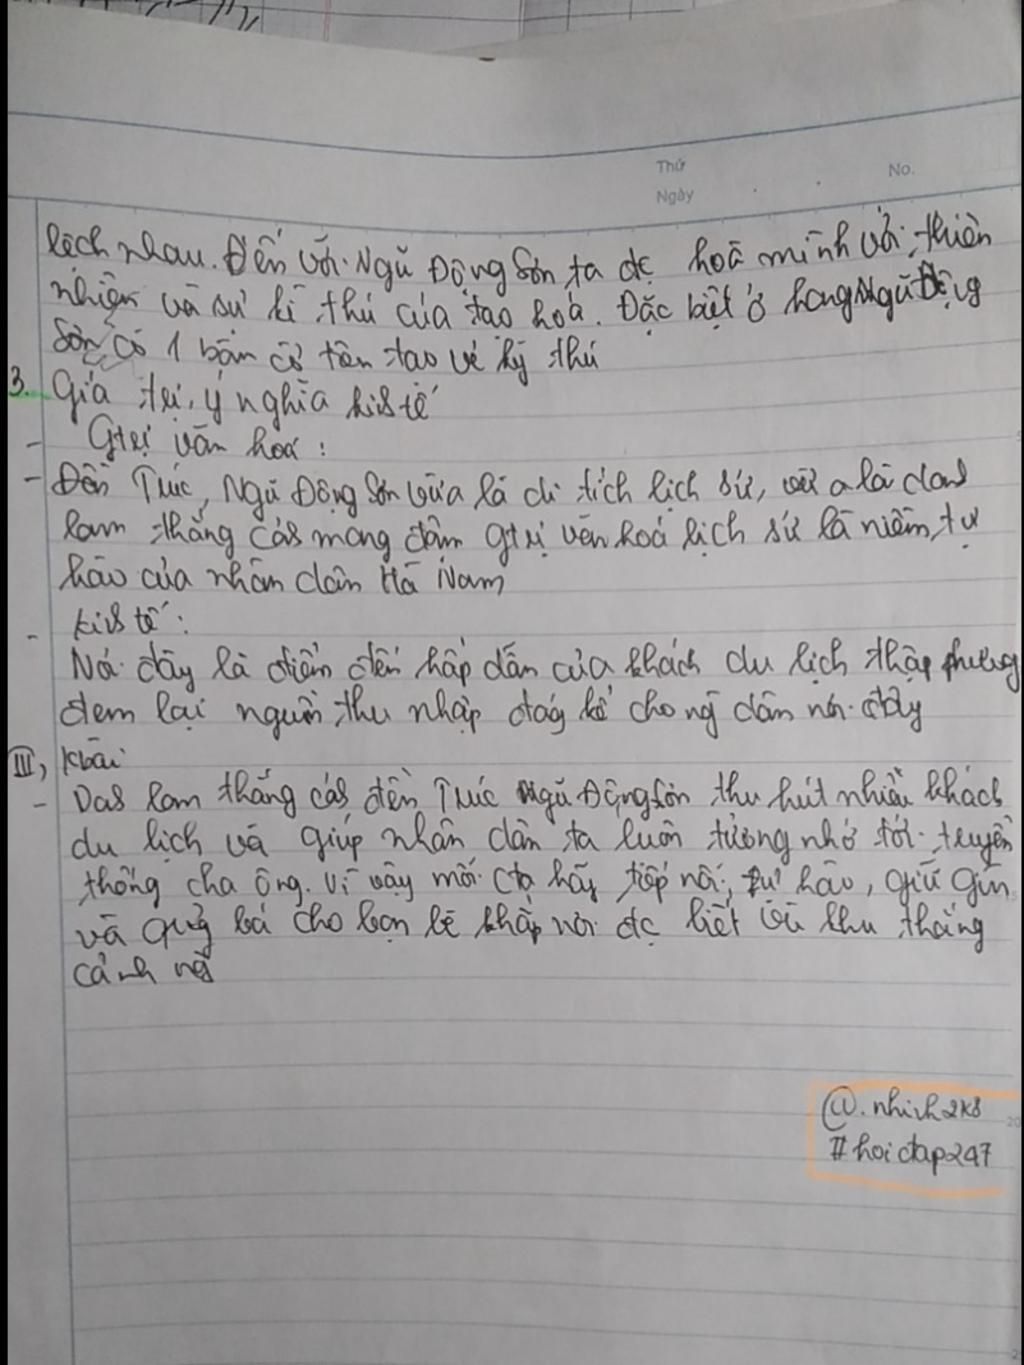 Thứ
No.
Ngày
lệch nhau. Đến với Ngũ Động Sơn ta đc hoà mình với thiên
nhiên và sự kì thú của tạo hoá. Đặc biệt ở hang Ngũ Động
Sơn có 1 bàn cờ tiên tạo vẻ kỳ thú
3. Giá trị, ý nghĩa kinh tế
- Gtrị văn hoá:
- Đền Trúc, Ngũ Động Sơn vừa là di tích lịch sử, vừa là danh
lam thắng cảnh mang đậm gtrị văn hoá lịch sử là niềm tự
hào của nhân dân Hà Nam
- Kinh tế:
Nơi đây là điểm đến hấp dẫn của khách du lịch thập phương
đem lại nguồn thu nhập đáng kể cho ng dân nơi đây
III, Kbài
- Danh lam thắng cảnh đền Trúc Ngũ Động Sơn thu hút nhiều khách
du lịch và giúp nhân dân ta luôn tưởng nhớ tới truyền
thống cha ông. Vì vậy mỗi cta hãy tiếp nối, tự hào, giữ gìn
và quảng bá cho bạn bè khắp nơi đc biết về khu thắng
cảnh này
@.nhinh2k8
#hoidap247